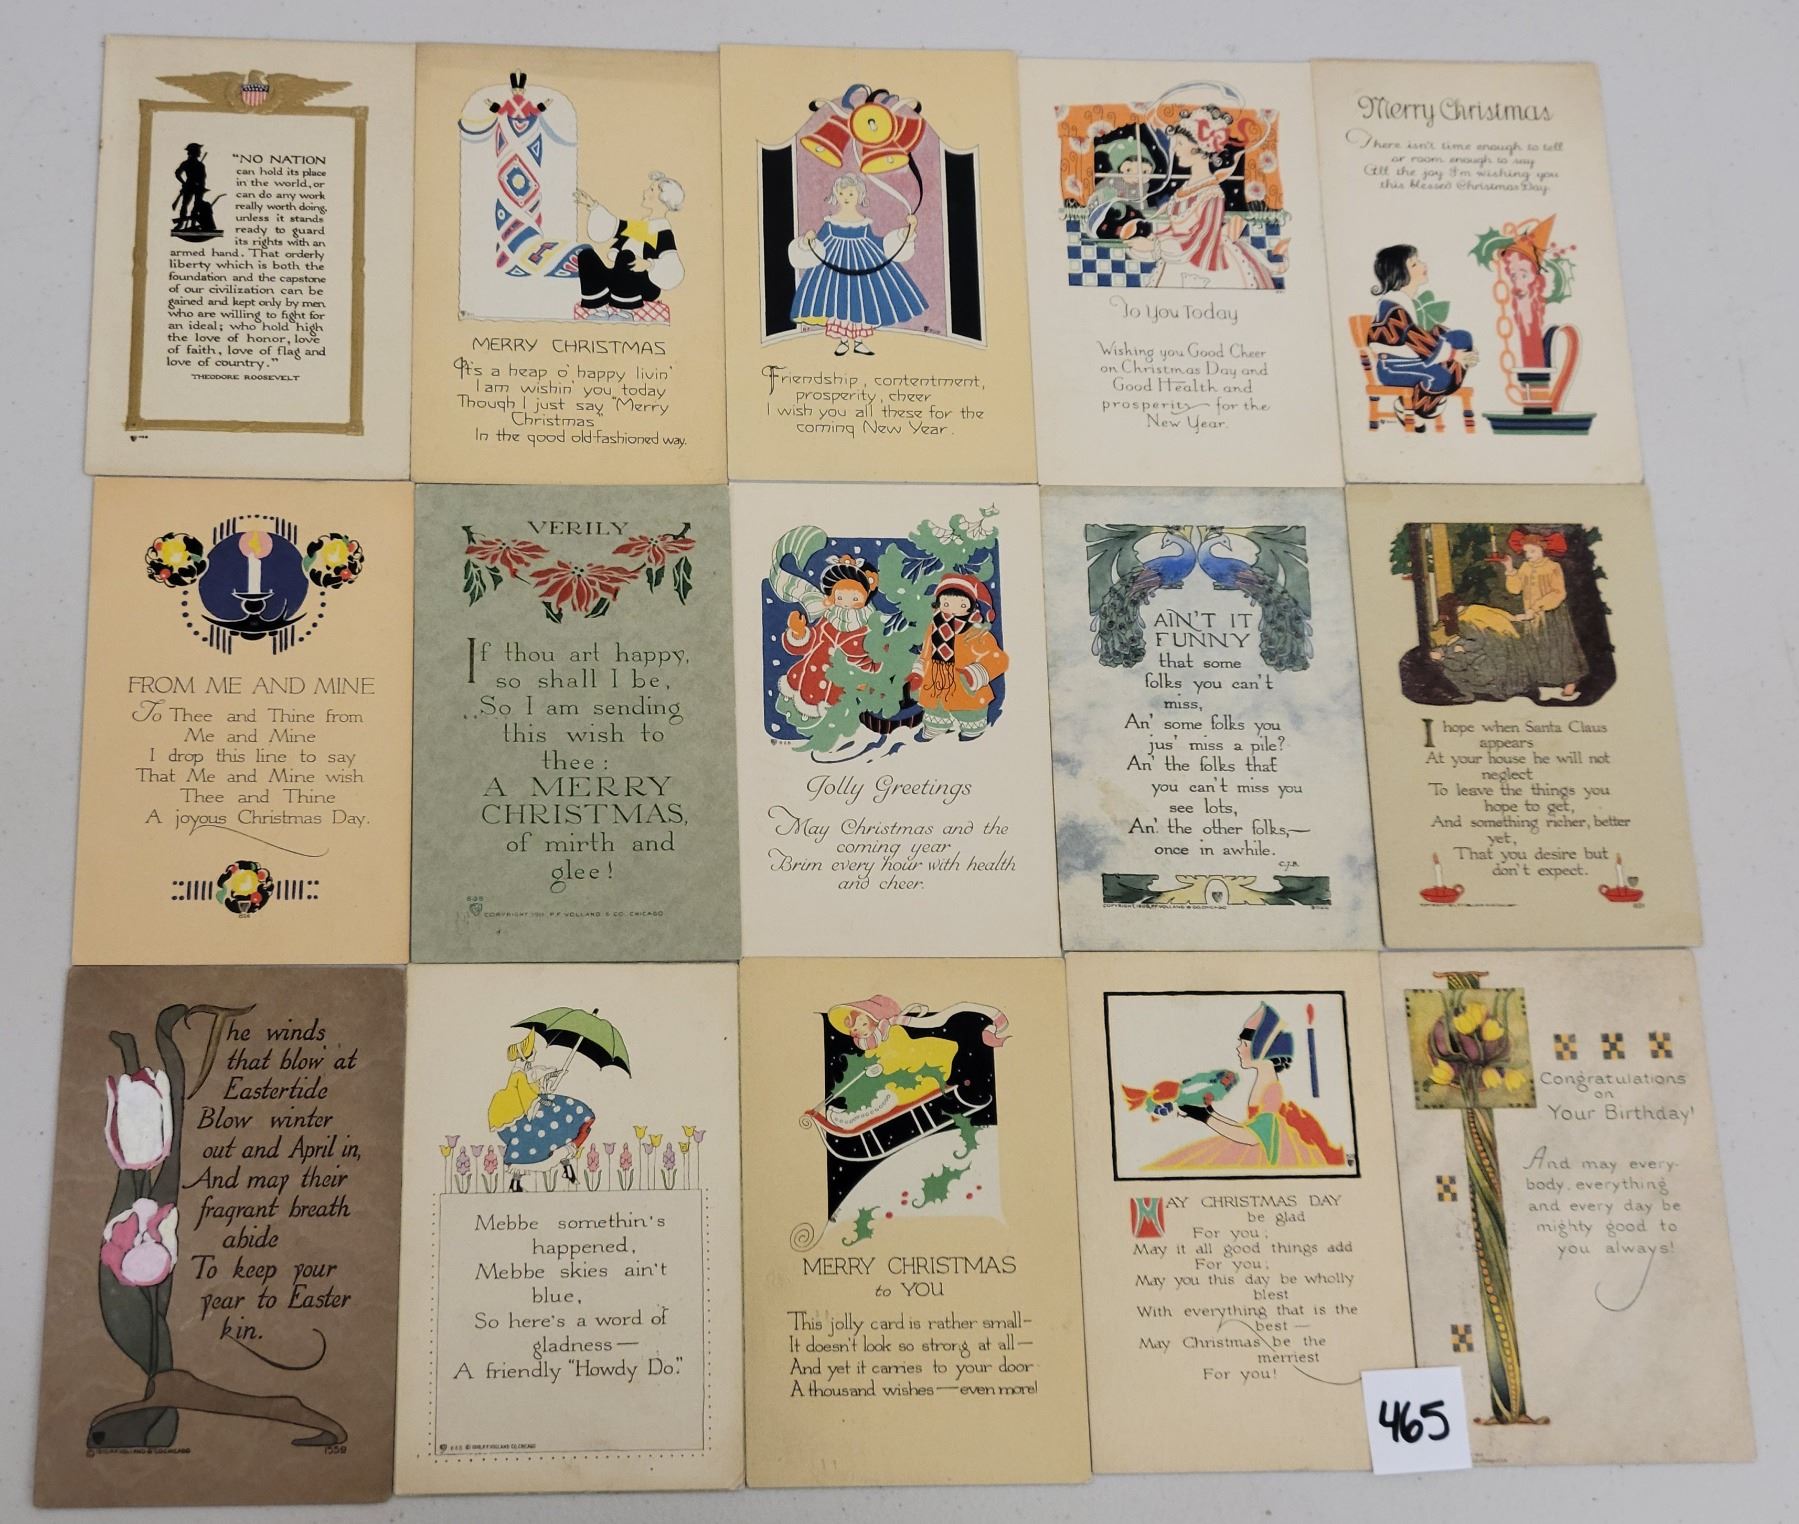 "NO NATION
can hold its place
in the world, or
can do any work
really worth doing,
unless it stands
ready to guard
its rights with an
armed hand. That orderly
liberty which is both the
foundation and the capstone
of our civilization can be
gained and kept only by men
who are willing to fight for
an ideal; who hold high
the love of honor, love
of faith, love of flag and
love of country."
THEODORE ROOSEVELT
MERRY CHRISTMAS
It's a heap o' happy livin'
I am wishin' you today
Though I just say "Merry
Christmas"
In the good old-fashioned way.
Friendship, contentment,
prosperity, cheer
I wish you all these for the
coming New Year.
To You Today
Wishing you Good Cheer
on Christmas Day and
Good Health and
prosperity for the
New Year.
Merry Christmas
There isn't time enough to tell
or room enough to say
All the joy I'm wishing you
this blessed Christmas Day.
FROM ME AND MINE
To Thee and Thine from
Me and Mine
I drop this line to say
That Me and Mine wish
Thee and Thine
A joyous Christmas Day.
VERILY
If thou art happy,
so shall I be,
So I am sending
this wish to
thee:
A MERRY
CHRISTMAS,
of mirth and
glee!
COPYRIGHT 1911 P.F. VOLLAND & CO. CHICAGO
Jolly Greetings
May Christmas and the
coming year
Brim every hour with health
and cheer.
AIN'T IT
FUNNY
that some
folks you can't
miss,
An' some folks you
jus' miss a pile?
An' the folks that
you can't miss you
see lots,
An' the other folks,—
once in awhile.
C.J.B.
COPYRIGHT, 1909, P.F. VOLLAND & CO. CHICAGO
I hope when Santa Claus
appears
At your house he will not
neglect
To leave the things you
hope to get,
And something richer, better
yet,
That you desire but
don't expect.
The winds
that blow at
Eastertide
Blow winter
out and April in,
And may their
fragrant breath
abide
To keep your
year to Easter
kin.
P.F. VOLLAND & CO. CHICAGO
1558
Mebbe somethin's
happened,
Mebbe skies ain't
blue,
So here's a word of
gladness—
A friendly "Howdy Do."
P.F. VOLLAND CO. CHICAGO
MERRY CHRISTMAS
to YOU
This jolly card is rather small—
It doesn't look so strong at all—
And yet it carries to your door
A thousand wishes—even more!
MAY CHRISTMAS DAY
be glad
For you;
May it all good things add
For you;
May you this day be wholly
blest
With everything that is the
best—
May Christmas be the
merriest
For you!
Congratulations
on
Your Birthday!
And may every-
body, everything
and every day be
mighty good to
you always!
465